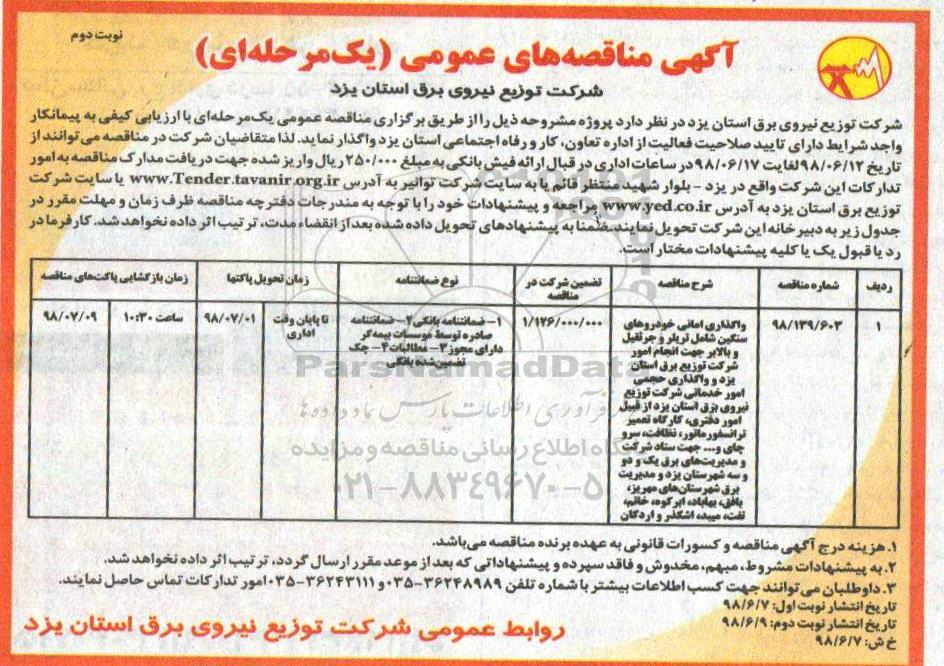 نوبت دوم
آگهی مناقصه‌های عمومی (یک‌مرحله‌ای)
شرکت توزیع نیروی برق استان یزد
شرکت توزیع نیروی برق استان یزد در نظر دارد پروژه مشروحه ذیل را از طریق برگزاری مناقصه عمومی یک‌مرحله‌ای با ارزیابی کیفی به پیمانکار
واجد شرایط دارای تایید صلاحیت فعالیت از اداره تعاون، کار و رفاه اجتماعی استان یزد واگذار نماید. لذا متقاضیان شرکت در مناقصه می‌توانند از
تاریخ ۹۸/۰۶/۱۲ لغایت ۹۸/۰۶/۱۷ در ساعات اداری در قبال ارائه فیش بانکی به مبلغ ۲۵۰/۰۰۰ ریال واریز شده جهت دریافت مدارک مناقصه به امور
تدارکات این شرکت واقع در یزد - بلوار شهید منتظر قائم یا به سایت شرکت توانیر به آدرس www.Tender.tavanir.org.ir یا سایت شرکت
توزیع برق استان یزد به آدرس www.yed.co.ir مراجعه و پیشنهادات خود را با توجه به مندرجات دفترچه مناقصه ظرف زمان و مهلت مقرر در
جدول زیر به دبیرخانه این شرکت تحویل نمایند. ضمنا به پیشنهادهای تحویل داده شده بعد از انقضاء مدت، ترتیب اثر داده نخواهد شد. کارفرما در
رد یا قبول یک یا کلیه پیشنهادات مختار است.
ردیف شماره مناقصه شرح مناقصه تضمین شرکت در مناقصه نوع ضمانتنامه زمان تحویل پاکتها زمان بازگشایی پاکت‌های مناقصه
۱ ۹۸/۱۳۹/۶۰۳
واگذاری امانی خودروهای
سنگین شامل تریلر و جرثقیل
و بالابر جهت انجام امور
شرکت توزیع برق استان
یزد و واگذاری حجمی
امور خدماتی شرکت توزیع
نیروی برق استان یزد از قبیل
امور دفتری، کارگاه تعمیر
ترانسفورماتور، نظافت، سرو
چای و... جهت ستاد شرکت
و مدیریت‌های برق یک و دو
و سه شهرستان یزد و مدیریت
برق شهرستان‌های مهریز،
بافق، بهاباد، ابرکوه، خاتم،
تفت، میبد، اشکذر و اردکان
۱/۱۲۶/۰۰۰/۰۰۰
۱- ضمانتنامه بانکی ۲- ضمانتنامه
صادره توسط موسسات بیمه‌گر
دارای مجوز ۳- مطالبات ۴- چک
تضمین شده بانکی
تا پایان وقت
اداری
۹۸/۰۷/۰۱
ساعت ۱۰:۳۰
۹۸/۰۷/۰۹
ParsNamadData
فرآوری اطلاعات پارس نماد داده‌ها
گاه اطلاع رسانی مناقصه و مزایده
۰۲۱-۸۸۳۴۹۶۷۰-۵
۱. هزینه درج آگهی مناقصه و کسورات قانونی به عهده برنده مناقصه می‌باشد.
۲. به پیشنهادات مشروط، مبهم، مخدوش و فاقد سپرده و پیشنهاداتی که بعد از موعد مقرر ارسال گردد، ترتیب اثر داده نخواهد شد.
۳. داوطلبان می‌توانند جهت کسب اطلاعات بیشتر با شماره تلفن ۳۶۲۴۸۹۸۹-۰۳۵ و ۳۶۲۴۳۱۱۱-۰۳۵ امور تدارکات تماس حاصل نمایند.
تاریخ انتشار نوبت اول: ۹۸/۶/۷
تاریخ انتشار نوبت دوم: ۹۸/۶/۹
خ ش: ۹۸/۶/۷
روابط عمومی شرکت توزیع نیروی برق استان یزد